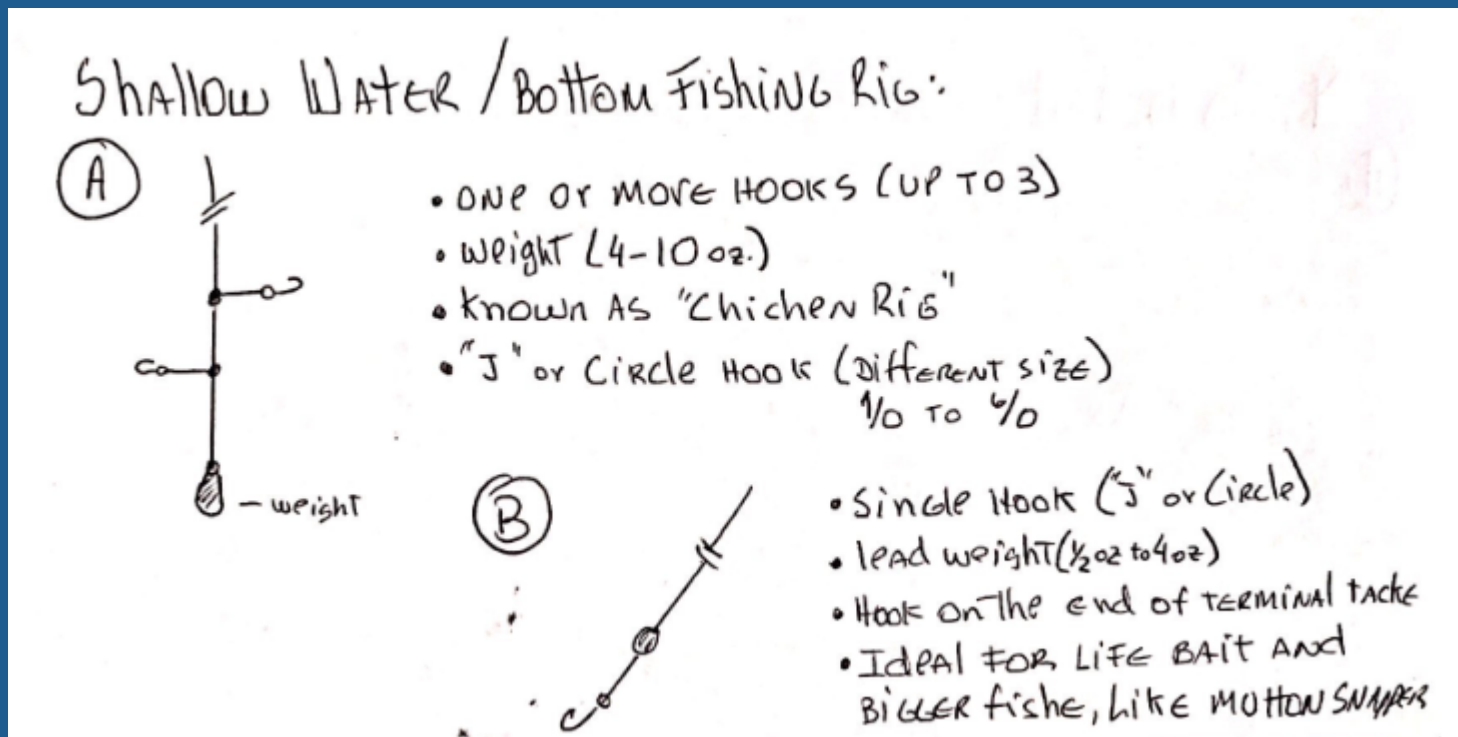 Shallow Water / Bottom Fishing Rig:
A
• one or more Hooks (up to 3)
• weight (4-10 oz.)
• Known As "Chichen Rig"
• "J" or Circle Hook (Different size)
1/0 to 6/0
- weight
B
• Single Hook ("J" or Circle)
• lead weight (1/2 oz to 4 oz)
• Hook on the end of terminal tacke
• Ideal for life bait and
bigger fishe, like mutton snapper